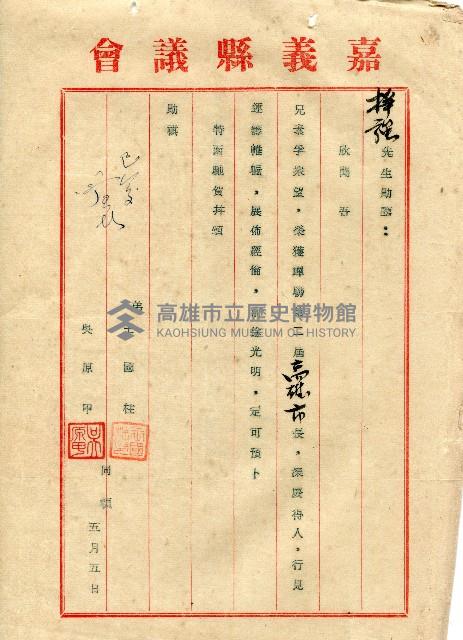 嘉義縣議會
先生勛鑒：
欣聞吾
兄素孚眾望，榮獲蟬聯第二屆高雄市長，深慶得人，行見
展佈經綸，光明，定可預卜
特函馳賀並頌
勛祺
弟 王國柱
吳原甲
同頓
五月五日
高雄市立歷史博物館
KAOHSIUNG MUSEUM OF HISTORY